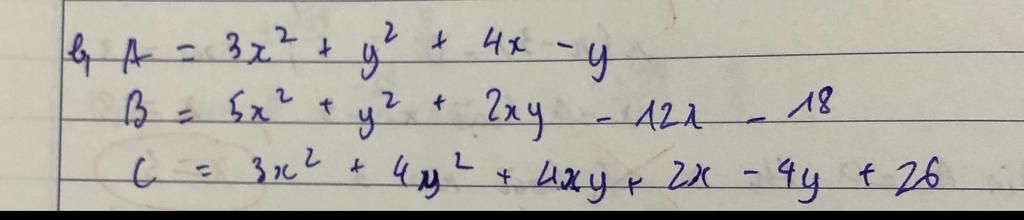 b, A = 3x² + y² + 4x - y
B = 5x² + y² + 2xy - 12x - 18
C = 3x² + 4y² + 4xy + 2x - 4y + 26